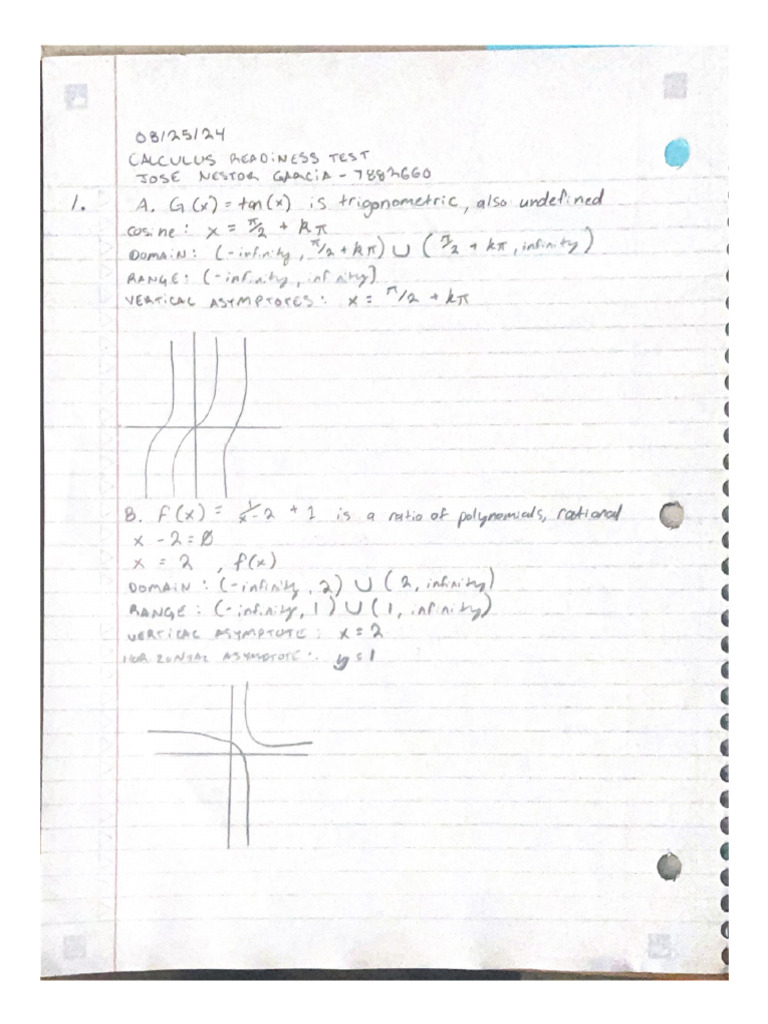 08/25/24
CALCULUS READINESS TEST
JOSE NESTOR GARCIA - 7882660
1. A. G(x) = tan(x) is trigonometric, also undefined
cosine: x = π/2 + kπ
DOMAIN: (-infinity, π/2 + kπ) ∪ (π/2 + kπ, infinity)
RANGE: (-infinity, infinity)
VERTICAL ASYMPTOTES: x = π/2 + kπ
B. F(x) = 1/x-2 + 1 is a ratio of polynomials, rational
x - 2 = 0
x = 2, f(x)
DOMAIN: (-infinity, 2) ∪ (2, infinity)
RANGE: (-infinity, 1) ∪ (1, infinity)
VERTICAL ASYMPTOTE: x = 2
HORIZONTAL ASYMPTOTE: y = 1